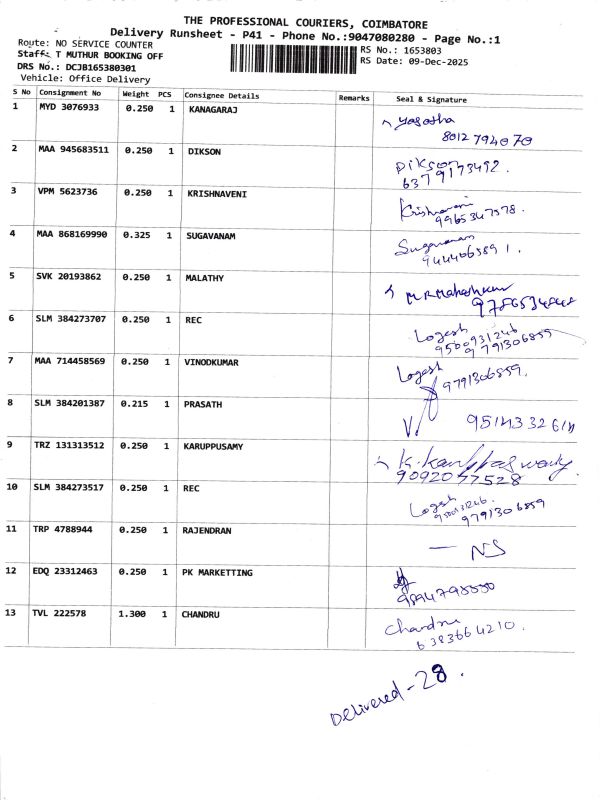 THE PROFESSIONAL COURIERS, COIMBATORE
Delivery Runsheet - P41 - Phone No.:9047080280 - Page No.:1
Route: NO SERVICE COUNTER
Staff: T MUTHUR BOOKING OFF
DRS No.: DCJB165380301
Vehicle: Office Delivery
RS No.: 1653803
RS Date: 09-Dec-2025
S No Consignment No Weight PCS Consignee Details Remarks Seal & Signature
1 MYD 3076933 0.250 1 KANAGARAJ
8012794070
2 MAA 945683511 0.250 1 DIKSON Dikson
6379173492.
3 VPM 5623736 0.250 1 KRISHNAVENI Krishnaveni
9965347578.
4 MAA 868169990 0.325 1 SUGAVANAM Sugavanam
5 SVK 20193862 0.250 1 MALATHY
6 SLM 384273707 0.250 1 REC Logesh
9500931246
9791306859
7 MAA 714458569 0.250 1 VINODKUMAR Logesh
9791306859.
8 SLM 384201387 0.215 1 PRASATH
9 TRZ 131313512 0.250 1 KARUPPUSAMY
9092077528
10 SLM 384273517 0.250 1 REC Logesh
9791306859
11 TRP 4788944 0.250 1 RAJENDRAN — NS
12 EDQ 23312463 0.250 1 PK MARKETTING
13 TVL 222578 1.300 1 CHANDRU Chandru
6383664210.
Delivered - 28.